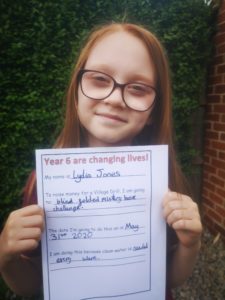 Year 6 are changing lives!
My name is Lydia Jones
To raise money for a Village Drill, I am going
to blind folded mistery box
challenge.
The date I'm going to do this on is May
31st 2020
I am doing this because clean water is needed
every where.